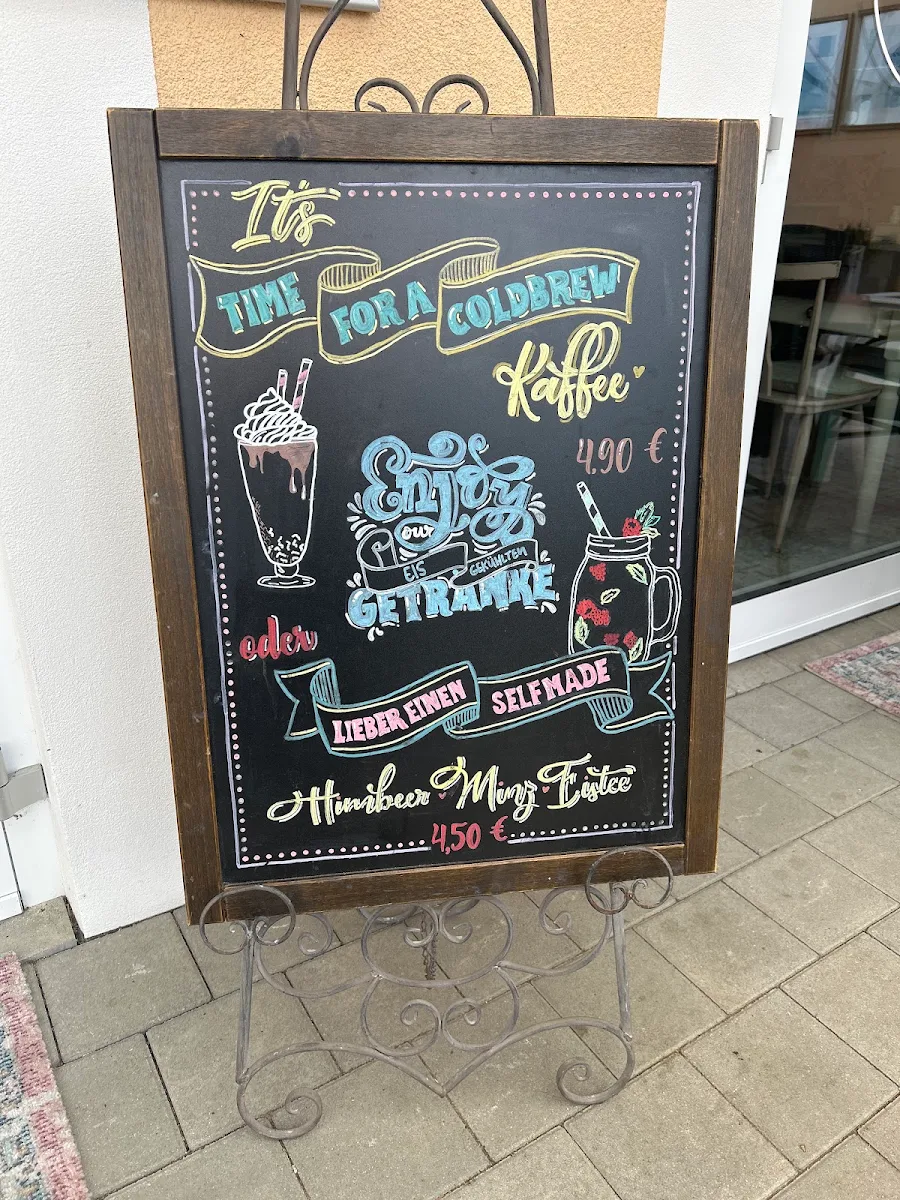 It's
TIME FOR A COLDBREW
Kaffee
4.90 €
Enjoy
our
EIS GEKÜHLTEN
GETRÄNKE
oder
LIEBER EINEN SELFMADE
Himbeer Minz Eistee
4,50 €